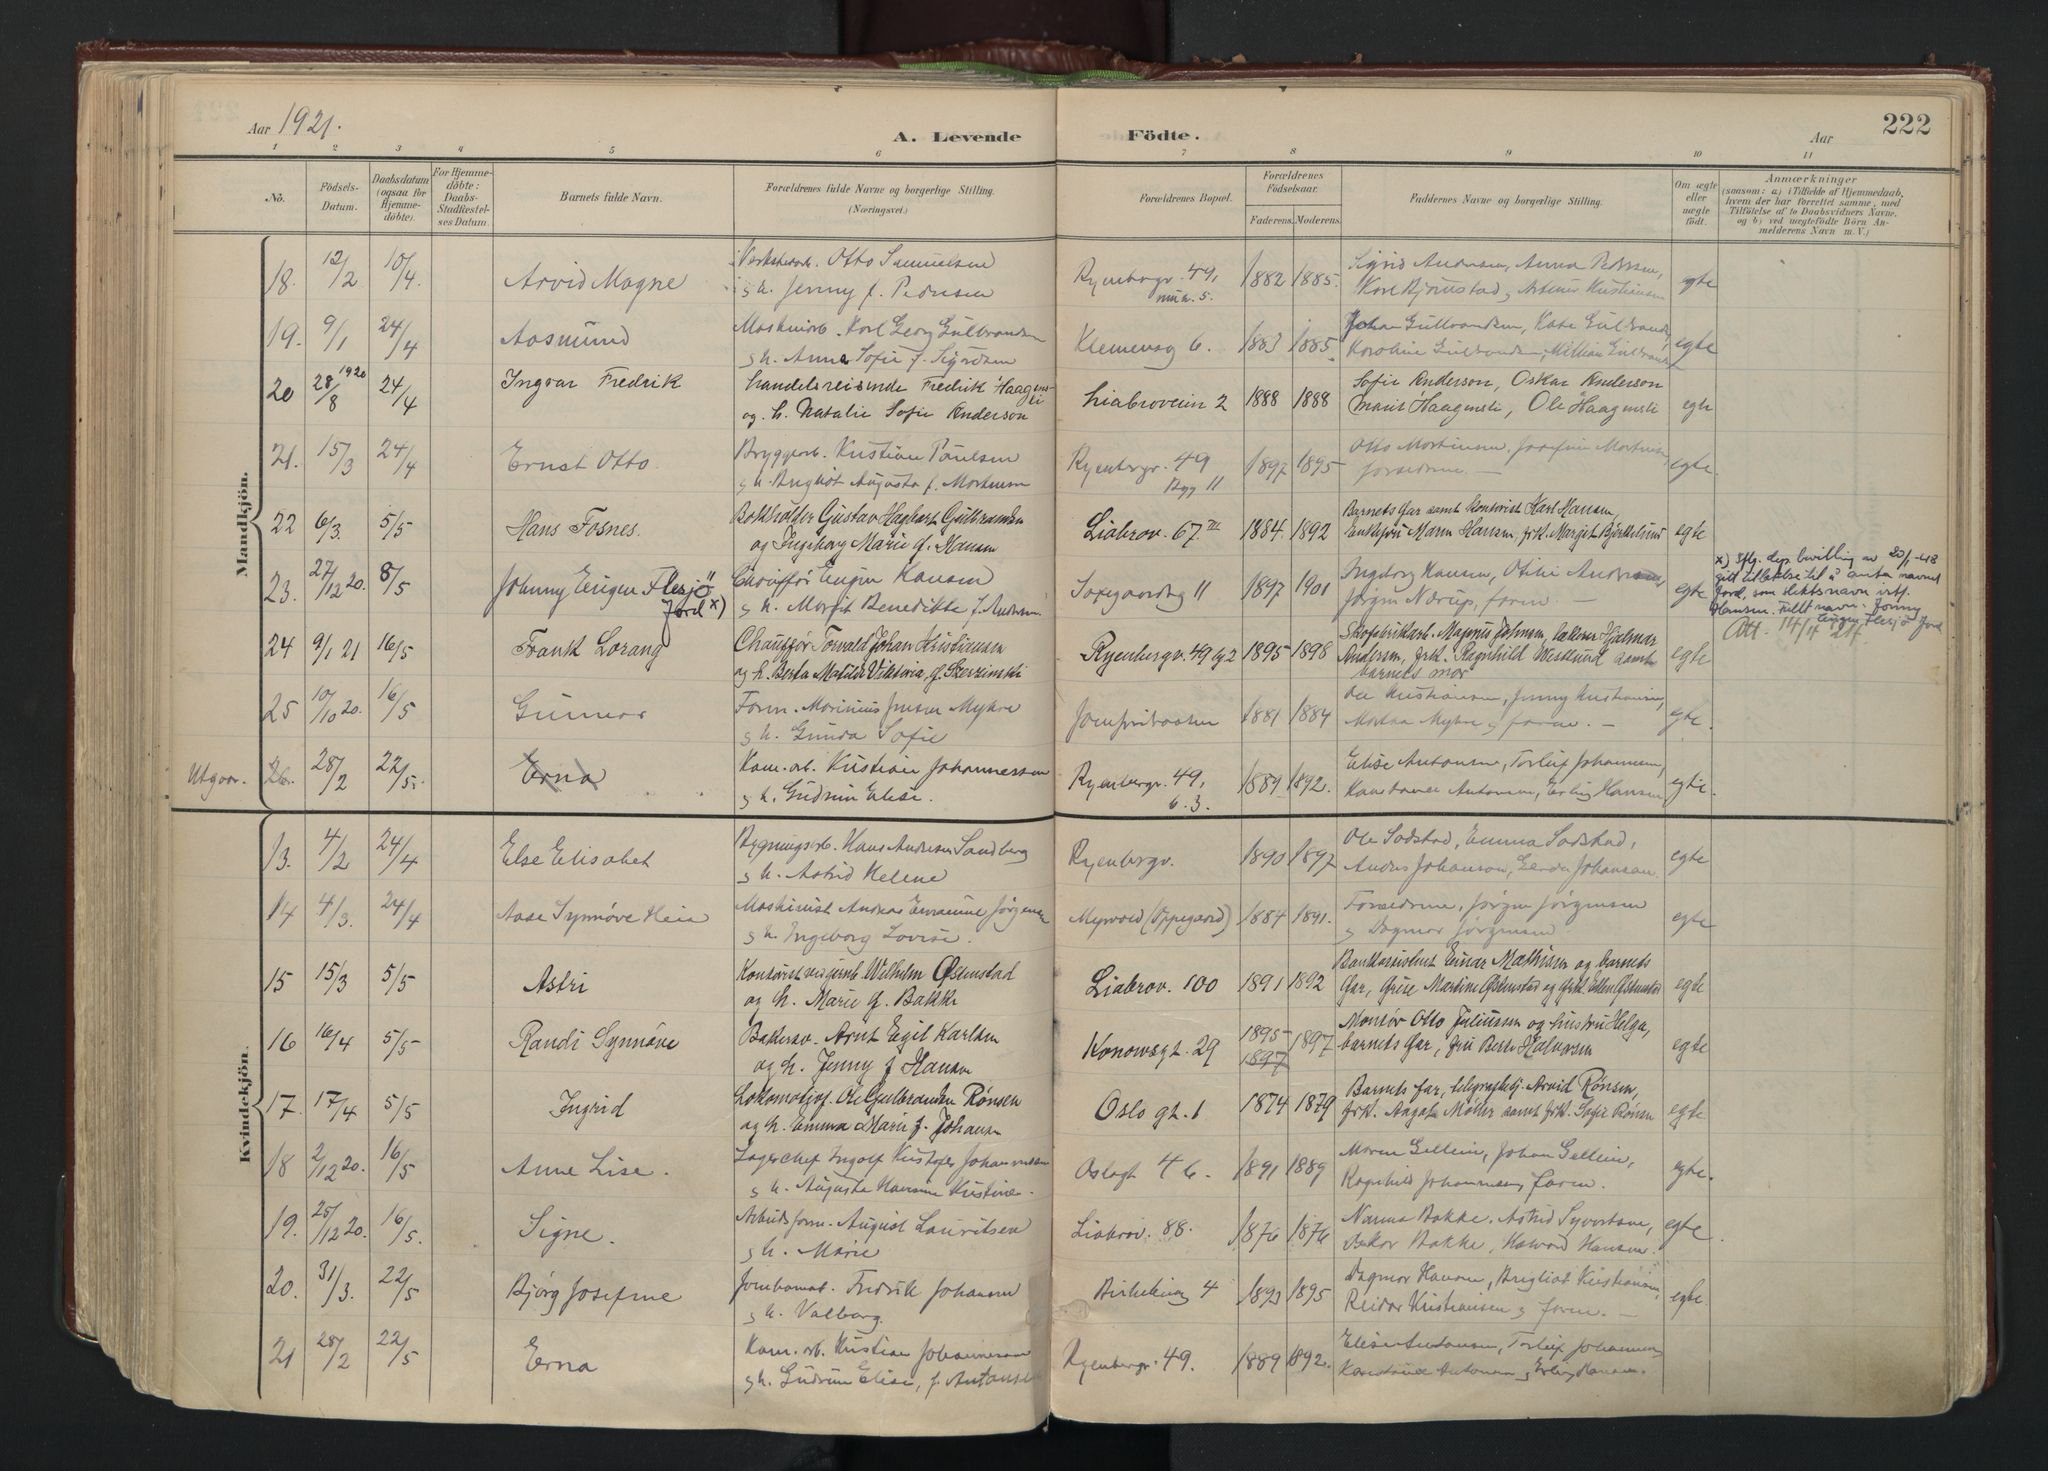 Aar 1921. A. Levende Födte. Aar 222
1 2 3 4 5 6 7 8 9 10 11
No. Födsels-Datum. Daabsdatum (ogsaa för Hjemmedöbte). For Hjemmedöbte: Daabs-Stadfestelses Datum. Barnets fulde Navn. Forældrenes fulde Navne og borgerlige Stilling. (Næringsvei.) Forældrenes Bopæl. Forældrenes Födselsaar. Faderens. Moderens. Faddernes Navne og borgerlige Stilling. Om ægte eller uægte födt. Anmærkninger
(saasom: a) i Tilfælde af Hjemmedaab, hvem der har forrettet samme, med Tilföielse af to Daabsvidners Navne, og b) ved uægtefödte Börn Anmelderens Navn m. V.)
Mandkjön.
18. 12/2 10/4 Arvid Magne Otto Samuelsen Ryenbergv. 49, 1882 1885. Sigrid Andersen, Anna Pedersen, egte
g h. Jenny f. Pedersen Karl Bjørnstad
19. 9/1 24/4 Aasmund Maskinarb. Karl Georg Gulbrandsen Klemensg 6. 1883 1885. Johan Gulbrandsen, egte
g h. Anna Sofie f. Sigurdsen Karoline Gulbrandsen
20 28/8 1920 24/4 Ingvar Fredrik Handelsreisende Fredrik Haagensli Liabroveien 2 1888 1888 Sofie Anderson, Oskar Anderson egte
og h. Natalie Sofie Anderson Marit Haagensli, Ole Haagensli
21. 15/3 24/4 Ernst Otto. Bryggerarb. Kristian Paulsen Ryenbergv. 49 1897 1895 Otto Mortensen, Josefine Mortensen egte
g h. Augusta f. Mortensen Bygg 11 forældrene. —
22 6/3. 5/5 Hans Fosnes. Bokholder Gustav Hagbart Gulbrandsen Liabrov. 67 III 1884. 1892 Barnets far samt kontorist Karl Hansen, egte
og Ingeborg Marie f. Hansen frk. Margit Bjørkelund
23. 27/12 20. 8/5 Johnny Eugen Flesjö Jord x) Chauffør Eugen Hansen Saxegaardsg 11 1897 1901 Ingeborg Hansen, Otilie Andersen, egte
g h. Margit Benedikte f. Andersen Jørgen Nærup, faren.
x) Iflg. dep. bevilling av 20/1-48
gitt tillatelse til å anta navnet
Jord, som slektsnavn istf.
Hansen. Fullt navn: Jonny
Eugen Flesjö Jord
Att. 14/4
24 9/1 21 16/5 Frank Lorang Chauffør Torvald Johan Kristiansen Ryenbergv. 49 1895 1898 Skofabrikarb. Magnus Johnsen, Hjalmar egte
og h. Berta Matilde Viktoria, f. Andersen, frk. Ragnhild Westlund samt
barnets mor
25 10/10 20. 16/5 Gunnar Form. Marinius Jensen Myhre 1881 1884 Kristiansen, Jenny Kristiansen, egte.
g h. Gunda Sofie Martha Myhre g faren. —
Utgaar. 26. 28/2 22/5. Erna Kom. arb. Kristian Johannessen Ryenbergv. 49, 1889 1892. Elise Antonsen, Torleif Johannesen, egte.
g h. Gudrun Elise. 6. 3. Antonsen, Erling Hansen
Kvindekjön.
13. 4/2 24/4 Else Elisabet Bygningsarb. Hans Andersen Sandberg Ryenbergv. 1890 1897 Ole Sodstad, Emma Sodstad, egte
g h. Astrid Helene Anders Johanson, Gerda Johansson.
14 4/3. 24/4 Aase Synnøve Heia Maskinist Andreas Jørgensen Myrvold (Oppegaard) 1884 1891. Forældrene, Jørgen Jørgensen egte
g h. Ingeborg Lovise. g Dagmar Jørgensen
15 15/3 5/5 Astri Wilhelm Østenstad Liabrov. 100 1891 1892 Bankassistent Einar Mathisen og barnets egte
og h. Marie f. Bakke far, Martine Østenstad og frk. Ellen Østenstad
16 16/4 5/5 Randi Synnøve Bakersv. Arnt Egil Karlsen Konowsgt. 29 1895 1897 1897 Montør Otto Juliussen og hustru Helga, egte
og h. Jenny f Hansen barnets far, fru Berte Halvorsen
17. 17/4 5/5 Ingrid Lokomotivf. Ole Gulbrandsen Rønsen Oslo gt. 1 1874 1879 Barnets far, Arvid Rønsen, egte
og h. Emma Marie f. Johansen frk. Møller samt frk. Sofie Rønsen
18 2/12 20. 16/5 Anne Lise. Lagerchef Ingolf Kristofer Johannessen Oslogt 46. 1891 1889 Maren Gellein, Johan Gellein, egte.
g h. Augusta Kristine. Ragnhild Johannessen, faren.
19. 25/12 20. 16/5. Signe. Arbeidsform. August Lauritsen Liabrov. 88. 1876 1876 Bakke, Astrid Syvertsen, egte
g h. Marie Oskar Bakke, Halvard Hansen.
20. 31/3. 22/5 Bjørg Josefine Fredrik Johansen 4 1893 1895 Dagmar Hansen, Kristiansen, egte.
g h. Valborg. Reidar Kristiansen g faren. —
21 28/2 22/5 Erna Kom. arb. Kristian Johannesen Ryenbergv. 49. 1889 1892. Elise Antonsen, Torleif Johannesen
g h. Gudrun Elise, f. Antonsen Antonsen g Erling Hansen.